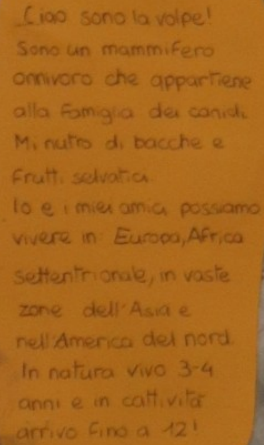 Ciao sono la volpe!
Sono un mammifero
onnivoro che appartiene
alla famiglia dei canidi.
Mi nutro di bacche e
frutti selvatici
Io e i miei amici possiamo
vivere in Europa, Africa
settentrionale, in vaste
zone dell'Asia e
nell'America del nord.
In natura vivo 3-4
anni e in cattività
arrivo fino a 12!